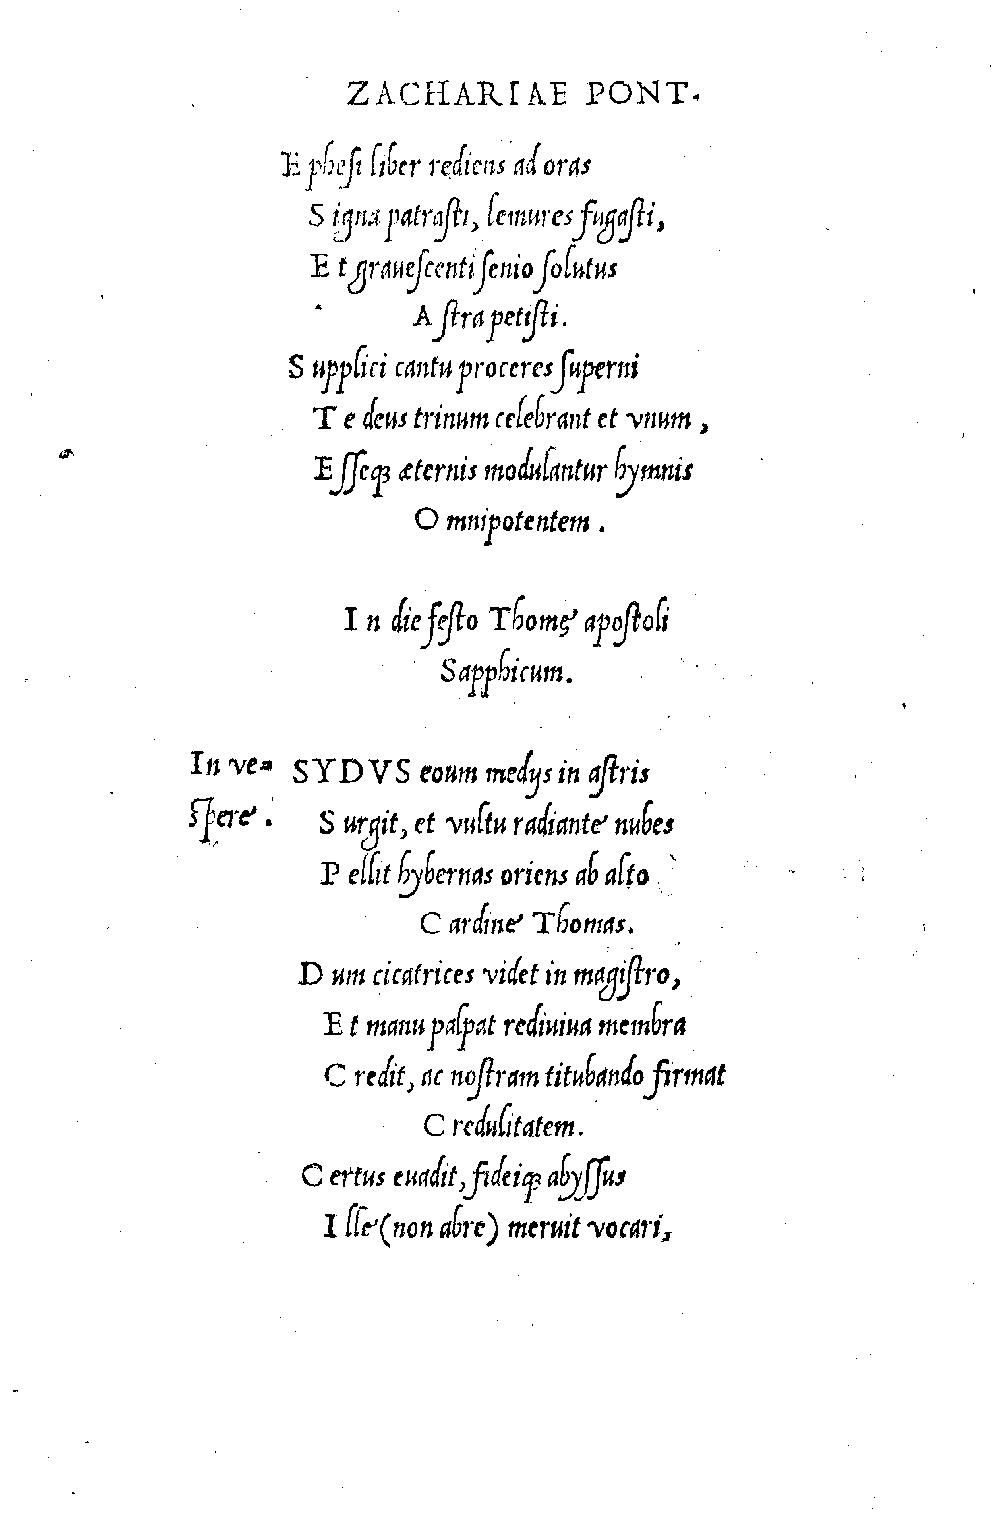 ZACHARIAE PONT.
Ephesi liber rediens ad oras
Signa patrasti, lemures fugasti,
Et grauescenti senio solutus
Astra petisti.
Supplici cantu proceres superni
Te deus trinum celebrant et vnum,
Esseq; æternis modulantur hymnis
Omnipotentem.
In die festo Thomę apostoli
Sapphicum.
In ve-
spere.
SYDVS eoum medijs in astris
Surgit, et vultu radiante nubes
Pellit hybernas oriens ab alto
Cardine Thomas.
Dum cicatrices videt in magistro,
Et manu palpat rediuiua membra
Credit, ac nostram titubando firmat
Credulitatem.
Certus euadit, fideiq; abyssus
Ille (non abre) meruit vocari,